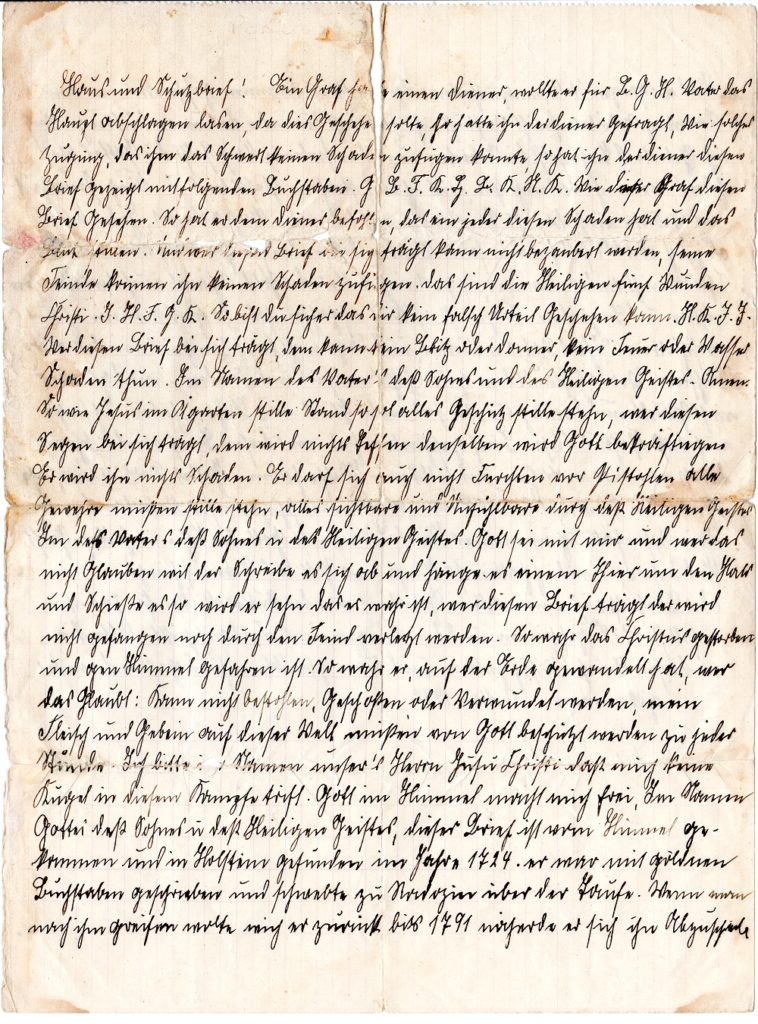 Haus und Schutzbrief! Ein Graf ha e einen diener, wollte er für B. G. H. Vater das
Haupt abschlagen lasen, da dies Geschehe solte Er hatte ihn der diener Gefragt, Wie solches
zuging, das ihm das Schwert keinen Schaden zufügen konnte, so hat ihn der diener diesen
Brief gezeigt mit folgenden Buchstaben. G B. F. K. H. B. K. N. K. Wie dieser Graf diesen
Brief Gesehen. So hat er dem diener befohlen, das ein jeder diesen Schaden hat und das
Blut Und wer diesen Brief bei sig trägt kann nicht bezaubert werden, seine
Feinde können ihn keinen Schaden zufügen. das sind die Heiligen fünf Wunden
Christi. J. H. F. G. K. So bist du sicher das dir kein falsch Urteil Geschehen kann. H. K. J. J.
Wer diesen Brief bei sich trägt, dem kann kein Blitz oder donner, kein Feuer oder Wasser
Schaden thun. Im Namen des Vater's deß Sohnes und des Heiligen Geistes. Amen.
So wie Jesus im Ölgarten stille Stand so sol alles Geschütz stille stehn, wer diesen
Segen bei sich tragt, dem wird nichts treffen denselben wird Gott bekräftiegen
Er wird ihn nichts Schaden. Er darf sich auch nicht Furchten vor Pistohlen alle
Gewehre müßen stille stehn, alles sichtbare und Unsichtbare durch deß Heiligen Geistes
Im des Vaters deß Sohnes u des Heiligen Geistes. Gott sei mit mir und wer das
nicht Glauben wil der Schreibe es sich ab und hänge es einem Thier um den Hals
und Schieße es so wird er sehn das es wahr ist, wer diesen Brief trägt der wird
nicht gefangen noch durch den Feind verletzt werden. So wahr das Christus gestorben
und gen Himmel gefahren ist. So wahr er, auf der Erde gewandelt hat, wer
das Glaubt: Kann nicht bestohlen, Geschoßen oder Verwundet werden, mein
Fleisch und Gebein auf dieser Welt müßen von Gott beschützt werden zu jeder
Stunde. Ich bitte im Namen unser's Herrn Jusu Christi daß mich keine
Kugel in diesem Kampfe trift. Gott im Himmel macht mich frei, Im Namen
Gottes deß Sohnes u deß Heiligen Geistes, dieser Brief ist vom Himmel ge-
kommen und in Holstein gefunden im Jahre 1724. er war mit goldnen
Buchstaben geschrieben und schwebte zu über der Taufe. Wenn man
nach ihm greifen wolte wich er zurück bits 1791 naherde er sich ihn Abzuschrei